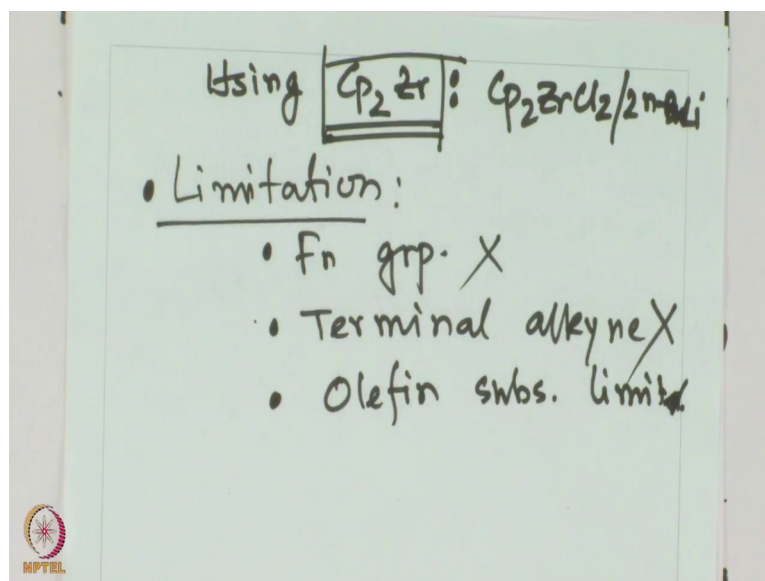 Using Cp2Zr: Cp2ZrCl2/2n-BuLi
• Limitation:
• Fn grp. X
• Terminal alkyne X
• Olefin subs. limited
NPTEL